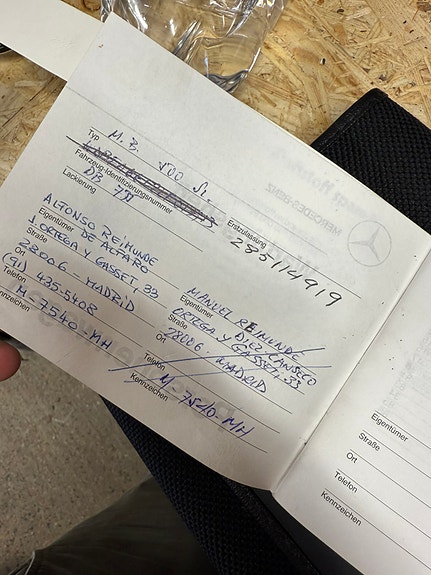 Typ M.B. 500 SL
Fahrzeug-Identifizierungsnummer
Lackierung DB 7
Erstzulassung 2835114919
Eigentümer ALFONSO REIMUNDE
DE ALFARO
Straße J. ORTEGA Y GASSET, 33
Ort 28006 - MADRID
Telefon (91) 435-5408
Kennzeichen M-7540-MH
Eigentümer MANUEL REIMUNDE
DIEZ CANSECO
Straße ORTEGA Y GASSET, 33
Ort 28006, MADRID
Telefon
Kennzeichen M-7540-MH
Eigentümer
Straße
Ort
Telefon
Kennzeichen
MERCEDES-BENZ